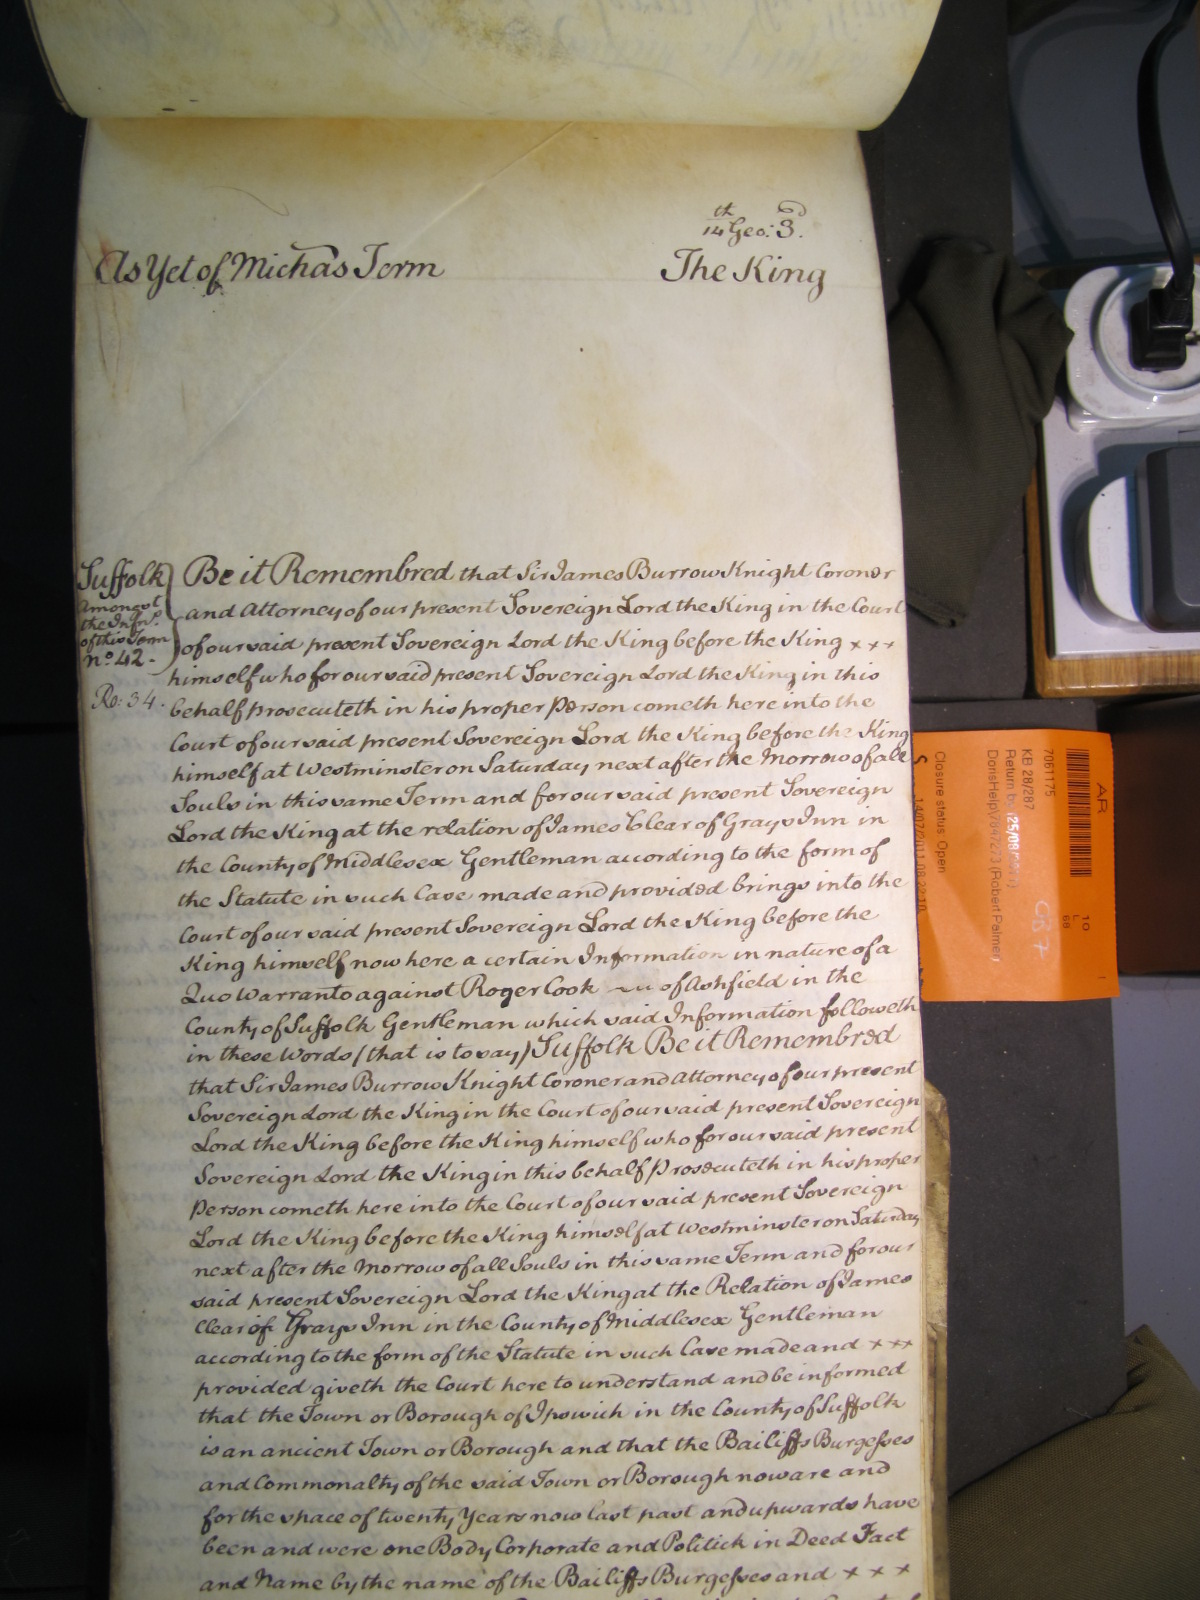 14th Geo: 3d.
As Yet of Michas Term The King
Suffolk
Amongst
the Infns.
of this Term
no. 42.
Ro: 34.
Be it Remembred that Sir James Burrow Knight Coroner
and Attorney of our present Sovereign Lord the King in the Court
of our said present Sovereign Lord the King before the King x x x
himself who for our said present Sovereign Lord the King in this
behalf prosecuteth in his proper Person cometh here into the
Court of our said present Sovereign Lord the King before the King
himself at Westminster on Saturday next after the Morrow of all
Souls in this same Term and for our said present Sovereign
Lord the King at the relation of James Clear of Grays Inn in
the County of Middlesex Gentleman according to the form of
the Statute in such Case made and provided brings into the
Court of our said present Sovereign Lord the King before the
King himself now here a certain Information in nature of a
Quo Warranto against Roger Cook of Ashfield in the
County of Suffolk Gentleman which said Information followeth
in these Words (that is to say) Suffolk Be it Remembred
that Sir James Burrow Knight Coroner and Attorney of our present
Sovereign Lord the King in the Court of our said present Sovereign
Lord the King before the King himself who for our said present
Sovereign Lord the King in this behalf Prosecuteth in his proper
Person cometh here into the Court of our said present Sovereign
Lord the King before the King himself at Westminster on Saturday
next after the Morrow of all Souls in this same Term and for our
said present Sovereign Lord the King at the Relation of James
Clear of Grays Inn in the County of Middlesex Gentleman
according to the form of the Statute in such Case made and x x x
provided giveth the Court here to understand and be informed
that the Town or Borough of Ipswich in the County of Suffolk
is an ancient Town or Borough and that the Bailiffs Burgesses
and Commonalty of the said Town or Borough now are and
for the space of twenty Years now last past and upwards have
been and were one Body Corporate and Politick in Deed Fact
and Name by the name of the Bailiffs Burgesses and x x x
AR
10
L
66
7061175
KB 28/287
Return by (25/08/2011)
DorisHelp\704273 (Robert Palmer)
CB 7
Closure status: Open
S